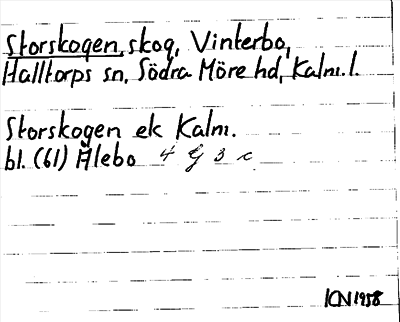 Storskogen, skog, Vinterbo,
Halltorps sn, Södra Möre hd, Kalm. l.
Storskogen ek Kalm.
bl. (61) Ålebo 4 G 3 c
KN 1958